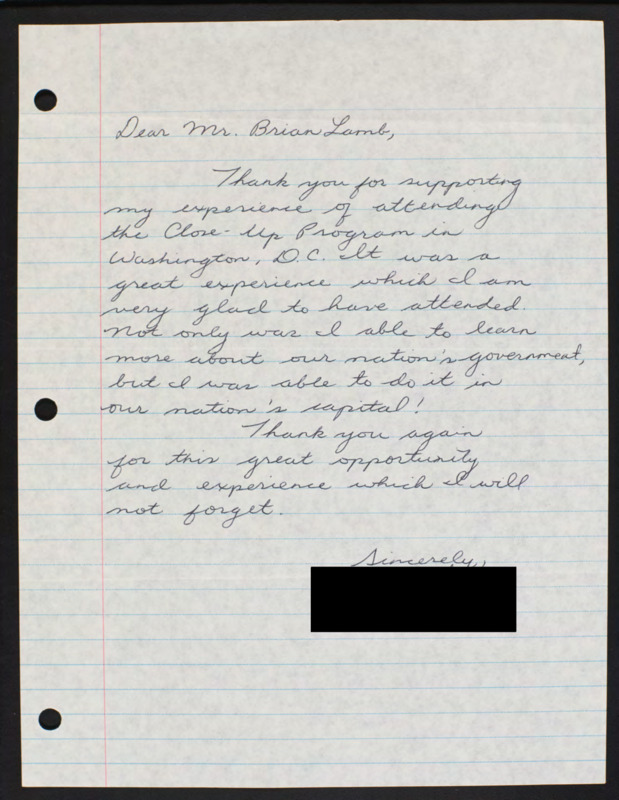 Dear Mr. Brian Lamb,
Thank you for supporting
my experience of attending
the Close-Up Program in
Washington, D.C. It was a
great experience which I am
very glad to have attended.
Not only was I able to learn
more about our nation's government,
but I was able to do it in
our nation's capital!
Thank you again
for this great opportunity
and experience which I will
not forget.
Sincerely,